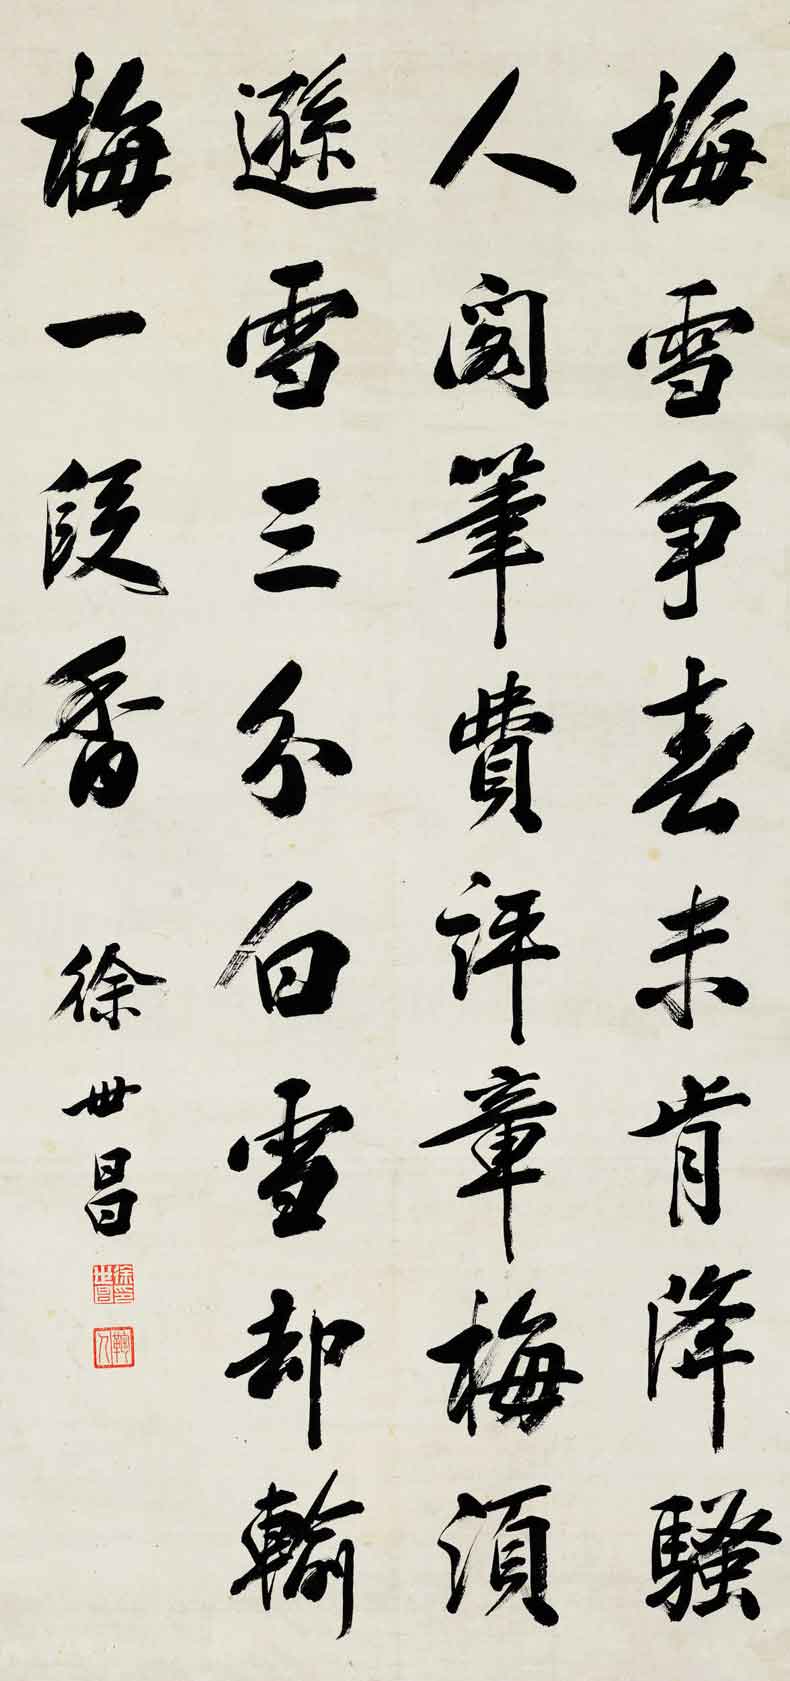 梅雪争春未肯降騷
人閣筆費評章梅須
遜雪三分白雪却輸
梅一段香
徐世昌
徐印世昌
鞠人